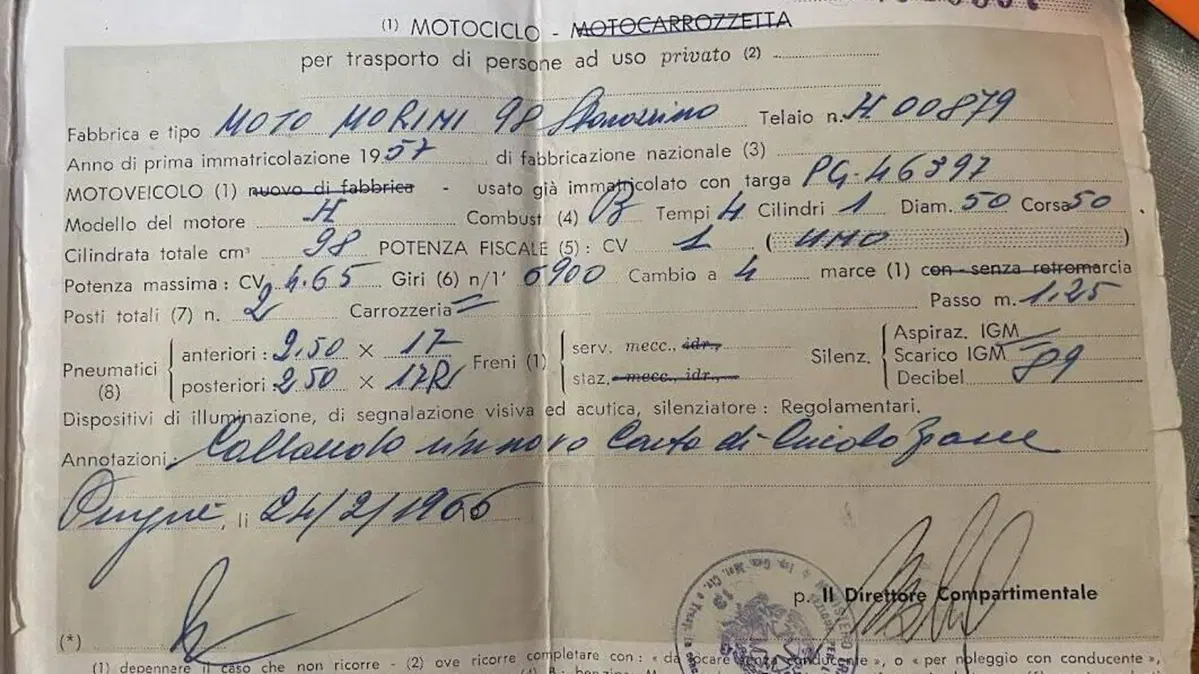 (1) MOTOCICLO - MOTOCARROZZETTA
per trasporto di persone ad uso privato (2)
Fabbrica e tipo MOTO MORINI 98 Telaio n. H 00879
Anno di prima immatricolazione 1957 di fabbricazione nazionale (3)
MOTOVEICOLO (1) nuovo di fabbrica - usato già immatricolato con targa PG-46397
Modello del motore H Combust (4) Tempi 4 Cilindri 1 Diam. 50 Corsa 50
Cilindrata totale cm³ 98 POTENZA FISCALE (5): CV 1 (UNO)
Potenza massima: CV 4.65 Giri (6) n/1' 6900 Cambio a 4 marce (1) con - senza retromarcia
Posti totali (7) n. 2 Carrozzeria = Passo m. 1.25
Pneumatici (8) anteriori: 2.50 × 17 posteriori: 2.50 × 17R Freni (1) serv. mecc., idr., staz. mecc., idr., Silenz. Aspiraz. IGM Scarico IGM Decibel 89
Dispositivi di illuminazione, di segnalazione visiva ed acutica, silenziatore: Regolamentari.
Annotazioni: Collaudo rinnovo Carta di Circolazione
li 24/2/1966
p. Il Direttore Compartimentale
(*)
(1) depennare il caso che non ricorre - (2) ove ricorre completare con: « da locare senza conducente », o « per noleggio con conducente »,